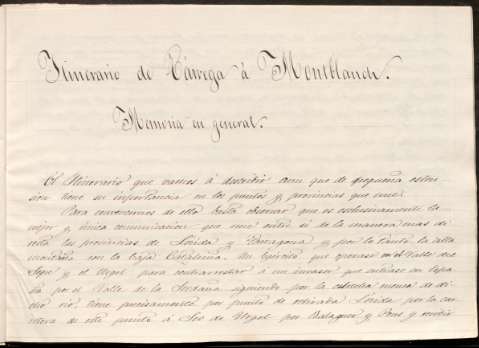 Itinerario de Tárrega á Montblanch.
Memoria en general.
El Itinerario que vamos á describir aun que de pequeña esten-
sion tiene su importancia en los puntos y provincias que une.
Para convencernos de ello basta observar que es esclusivamente la
mejor y única comunicacion que une entre si de la manera mas di-
recta las provincias de Lérida y Tarragona y por lo tanto la alta
montaña con la baja Cataluña. Un Ejército que operase en el Valle del
Segre y el Urgel para contrarrestar á un invasor que entrase en Espa-
ña por el Valle de la Cerdaña siguiendo por la estrecha cuenca de di-
cho rio tiene precisamente por punto de retirada Lérida por la car-
retera de este punto á Seo de Urgel por Balaguer y Pons y